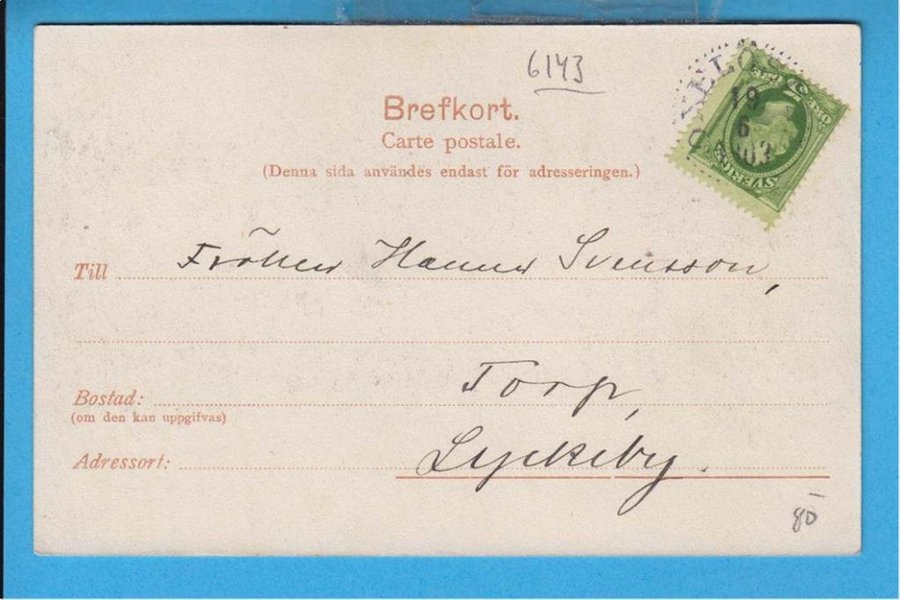 6143
Brefkort.
Carte postale.
(Denna sida användes endast för adresseringen.)
19
6
Till Fröken Hanna Svensson,
Bostad: Torp,
(om den kan uppgifvas)
Adressort: Lyckeby.
80